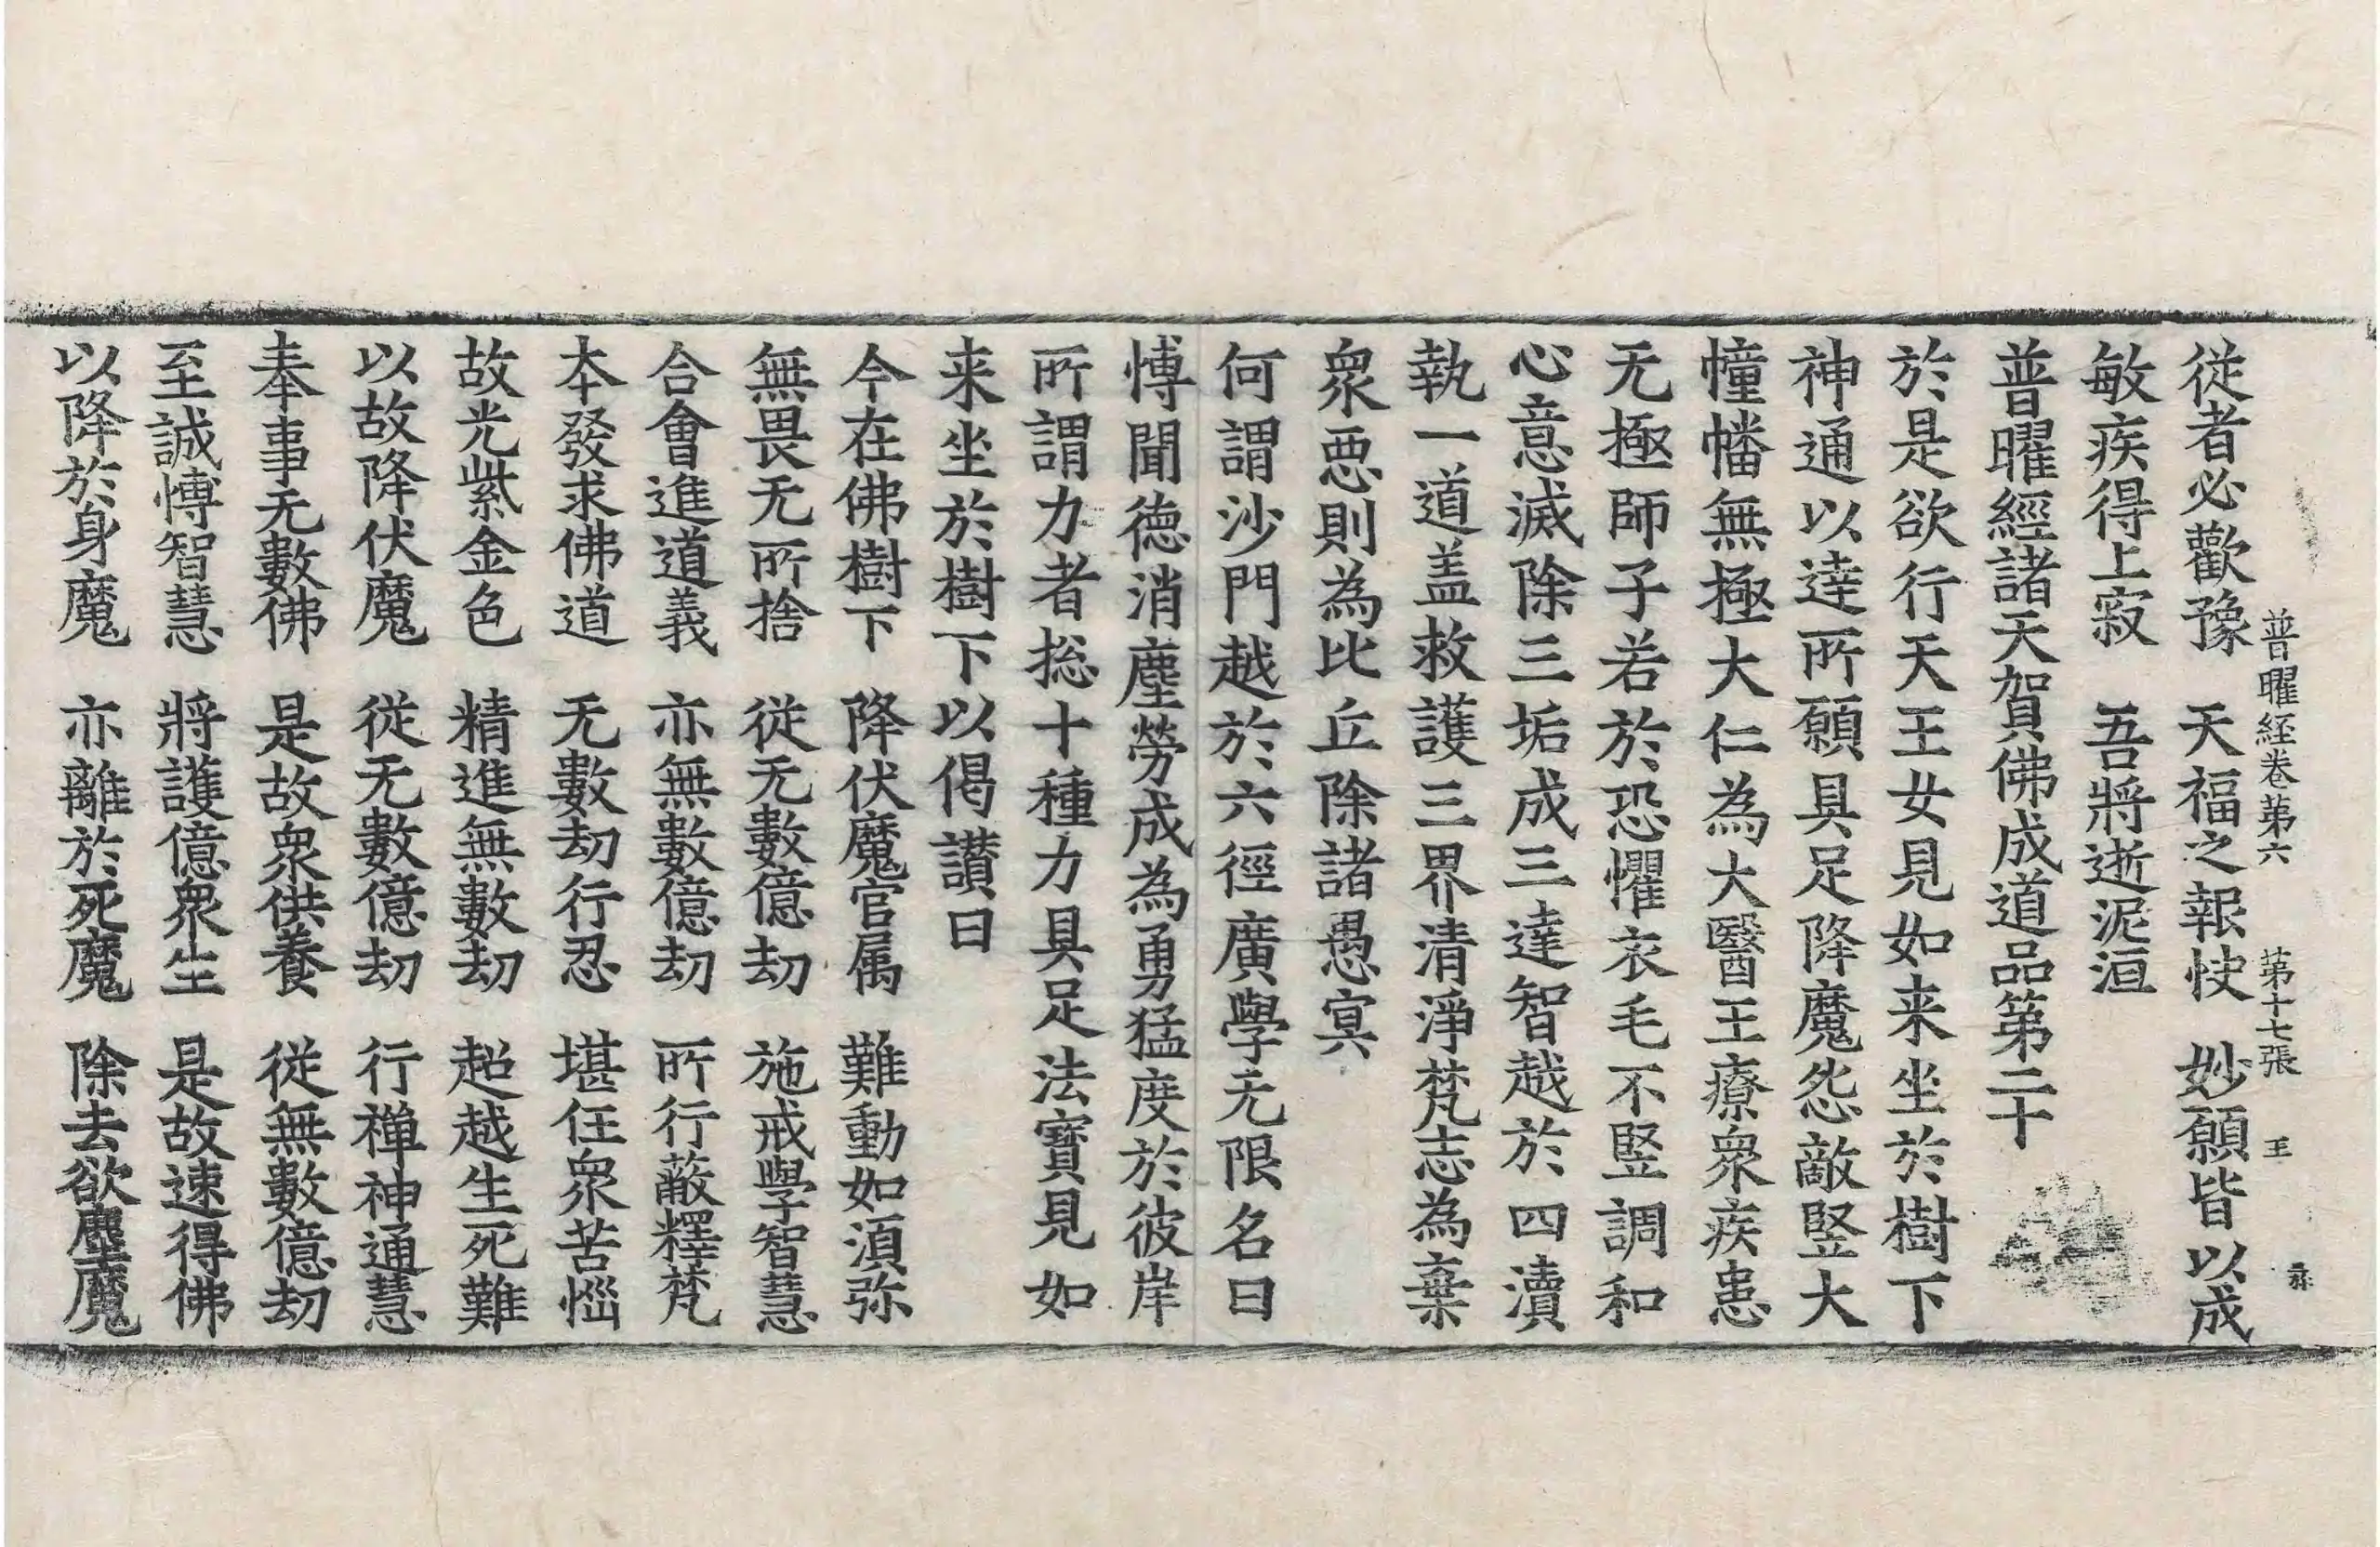 普曜経卷第六　第十七張　王
従者必歡豫　天福之報快　妙願皆以成
敏疾得上寂　吾將逝泥洹
普曜經諸天賀佛成道品第二十
於是欲行天王女見如来坐於樹下
神通以達所願具足降魔怨敵竪大
幢幡無極大仁為大醫王療衆疾患
无極師子若於恐懼衣毛不竪調和
心意滅除三垢成三達智越於四瀆
執一道盖救護三界清淨梵志為棄
衆惡則為比丘除諸愚冥
何謂沙門越於六徑廣學无限名曰
博聞徳消塵勞成為勇猛度於彼岸
所謂力者捴十種力具足法寶見如
来坐於樹下以偈讃曰
今在佛樹下　降伏魔官属　難動如湏弥
無畏无所捨　従无數億劫　施戒學智慧
合會進道義　亦無數億劫　所行蔽釋梵
本發求佛道　无數劫行忍　堪任衆苦惱
故光紫金色　精進無數劫　超越生死難
以故降伏魔　従无數億劫　行禅神通慧
奉事无數佛　是故衆供養　従無數億劫
至誠博智慧　將護億衆生　是故速得佛
以降於身魔　亦離於死魔　除去欲塵魔